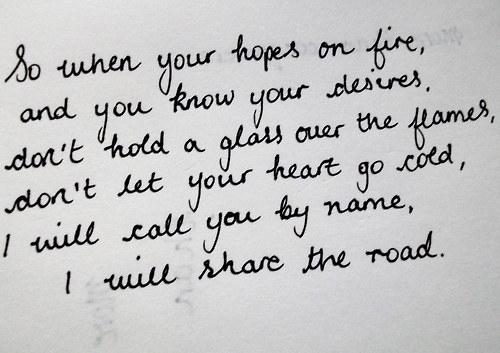 So when your hopes on fire,
and you know your desires,
don't hold a glass over the flames,
don't let your heart go cold,
I will call you by name,
I will share the road.